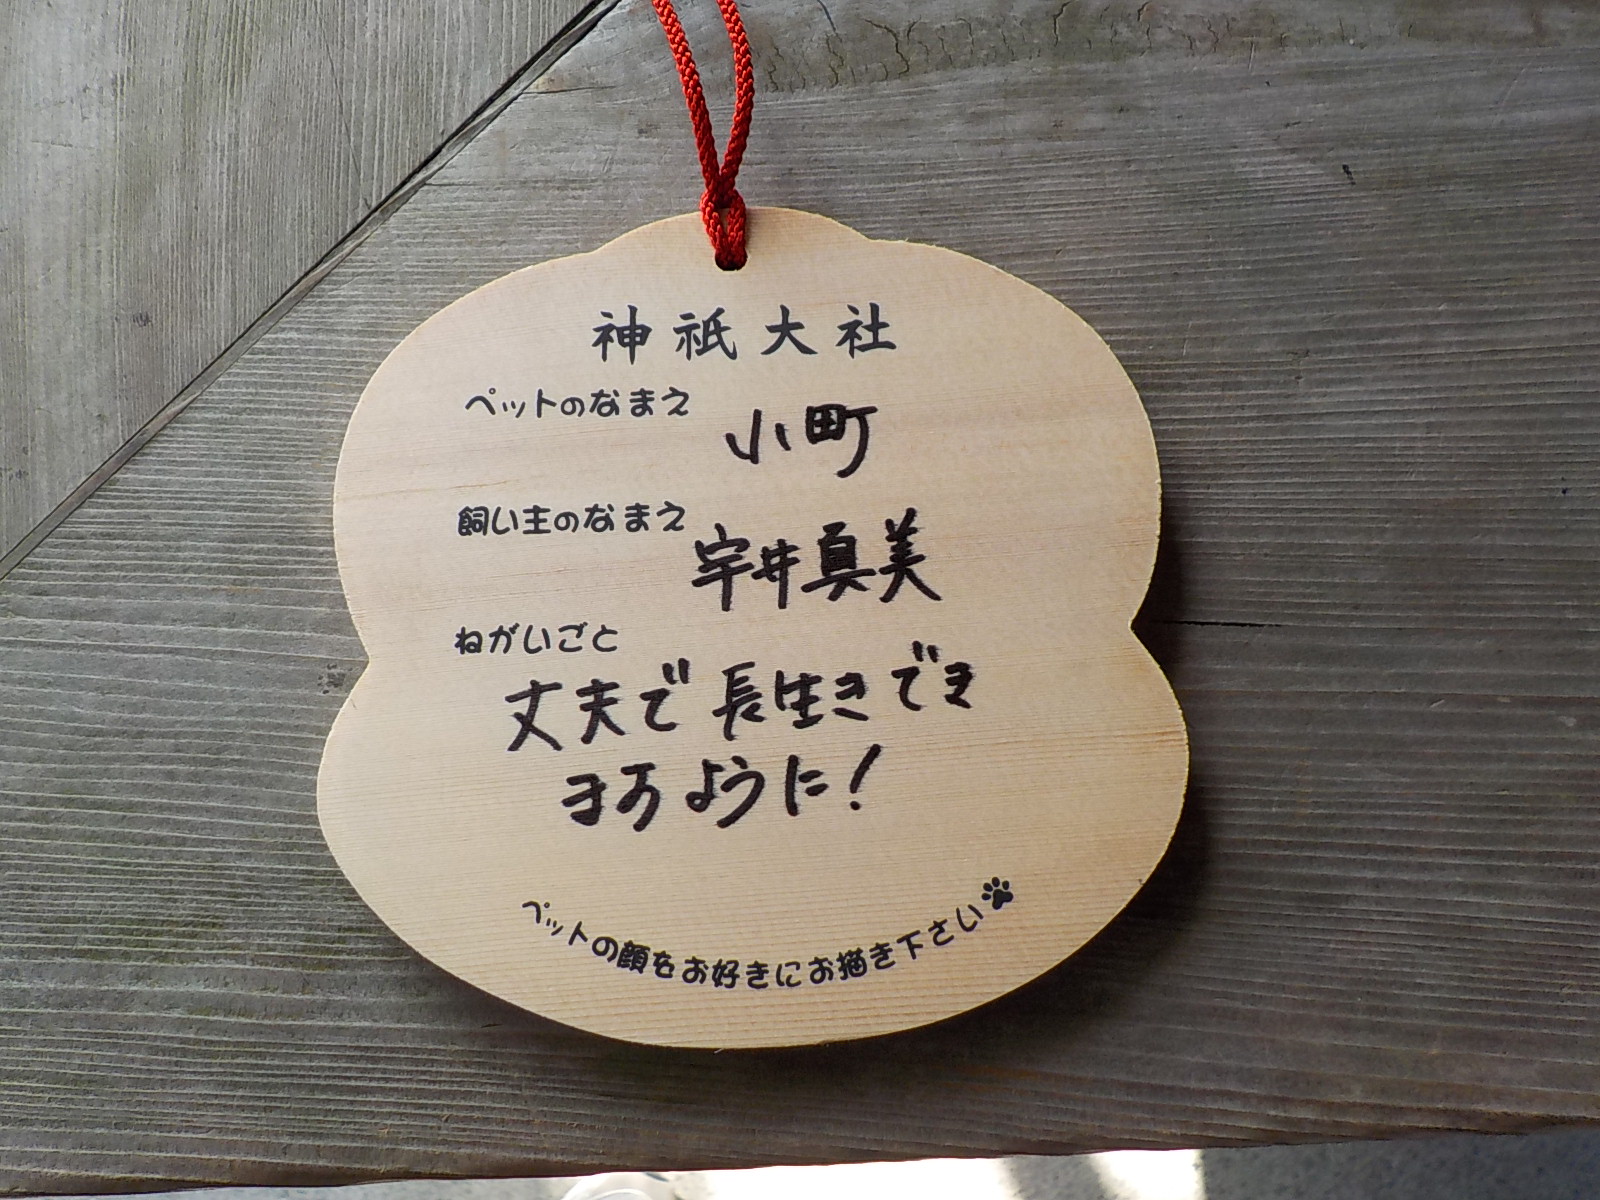 神祇大社
ペットのなまえ 小町
飼い主のなまえ 宇井真美
ねがいごと
丈夫で長生きでき
ますように!
ペットの顔をお好きにお描き下さい